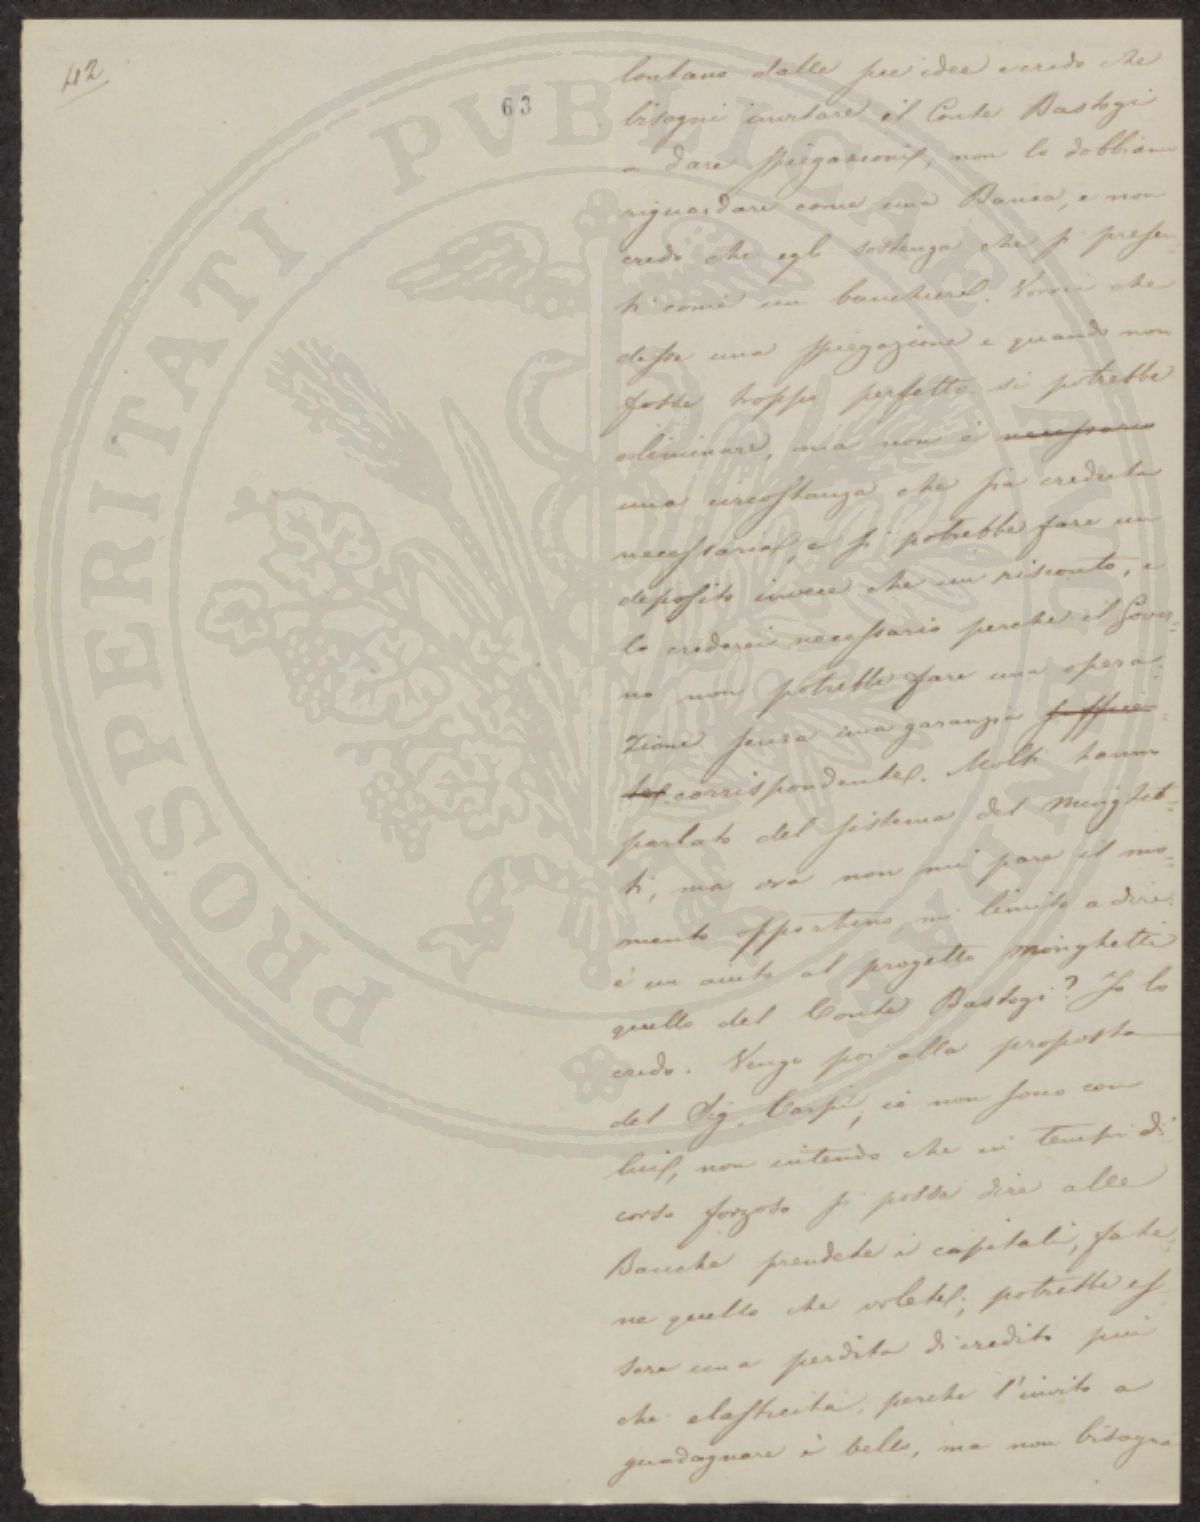 42
63
lontano dalle sue idee e credo che
bisogni invitare il Conte Bastogi
a dare spiegazioni, non lo dobbiamo
riguardare come una Banca, e non
credo che egli sostenga che si presen-
ti come un banchiere. Vorrei che
desse una spiegazione e quando non
fosse troppo perfetto si potrebbe
eliminare, ma non è necessario
una circostanza che sia creduta
necessaria, e si potrebbe fare un
deposito invece che un risconto, e
lo crederei necessario perche il Gover-
no non potrebbe fare una opera-
zione senza una garanzia sufficien-
te corrispondente. Molti hanno
parlato del sistema del Minghet-
ti, ma ora non mi pare il mo-
mento opportuno, mi limito a dire:
è un aiuto al progetto Minghetti
quello del Conte Bastogi? Io lo
credo. Vengo poi alla proposta
del Sig. Carpi, io non sono con
lui, non intendo che in tempi di
corso forzoso si possa dire alle
Banche prendete i capitali, fate-
ne quello che volete; potrebbe es
sere una perdita di credito più
che elasticità, perche l'invito a
guadagnare è bello, ma non bisogna
PROSPERITATI PVBLICAE AVGENDAE